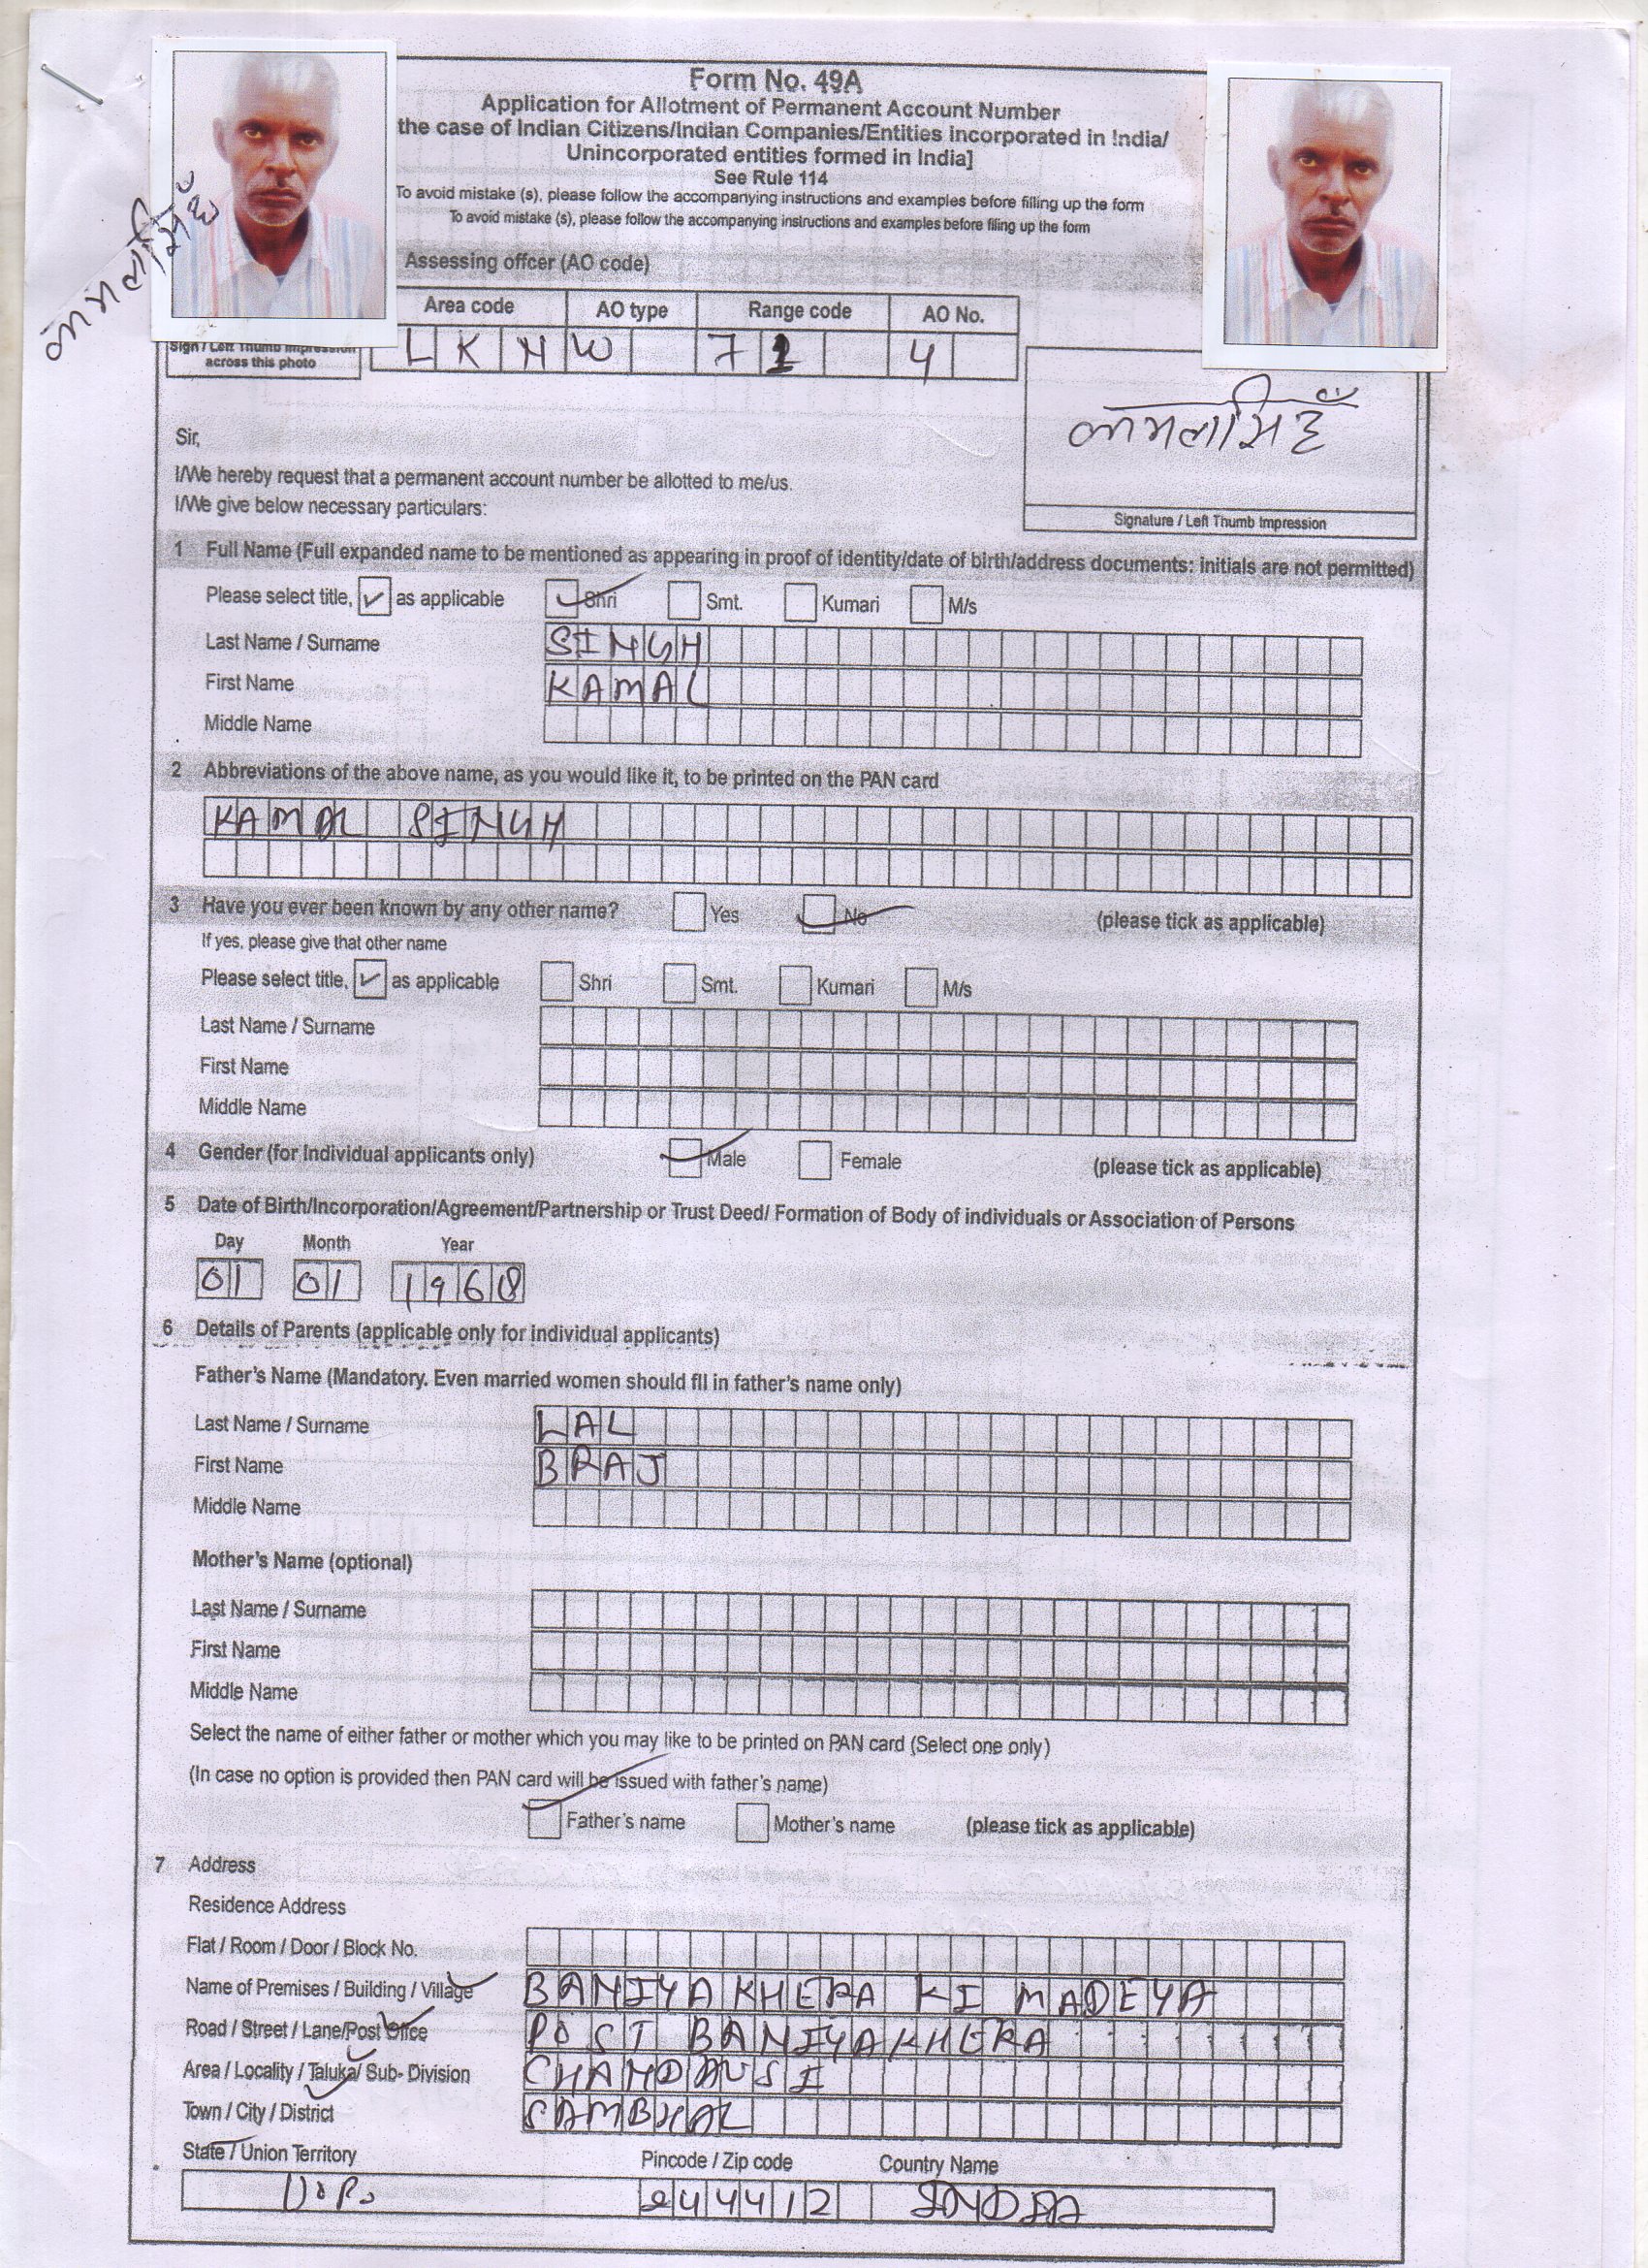 Form No. 49A
Application for Allotment of Permanent Account Number
the case of Indian Citizens/Indian Companies/Entities Incorporated in India/
Unincorporated entities formed in India]
See Rule 114
To avoid mistake (s), please follow the accompanying instructions and examples before filling up the form
To avoid mistake (s), please follow the accompanying instructions and examples before filing up the form
Assessing offcer (AO code)
Area code AO type Range code AO No.
L K N W 7 1 4
Sign / Left Thumb Impression
across this photo
कमल सिंह
कमल सिंह
Signature / Left Thumb Impression
Sir,
I/We hereby request that a permanent account number be allotted to me/us.
I/We give below necessary particulars:
1 Full Name (Full expanded name to be mentioned as appearing in proof of identity/date of birth/address documents: initials are not permitted)
Please select title, ✓ as applicable ✓ Shri Smt. Kumari M/s
Last Name / Surname SINGH
First Name KAMAL
Middle Name
2 Abbreviations of the above name, as you would like it, to be printed on the PAN card
KAMAL SINGH
3 Have you ever been known by any other name? Yes ✓ No (please tick as applicable)
If yes, please give that other name
Please select title, ✓ as applicable Shri Smt. Kumari M/s
Last Name / Surname
First Name
Middle Name
4 Gender (for Individual applicants only) ✓ Male Female (please tick as applicable)
5 Date of Birth/Incorporation/Agreement/Partnership or Trust Deed/ Formation of Body of individuals or Association of Persons
Day Month Year
01 01 1968
6 Details of Parents (applicable only for individual applicants)
Father's Name (Mandatory. Even married women should fll in father's name only)
Last Name / Surname LAL
First Name BRAJ
Middle Name
Mother's Name (optional)
Last Name / Surname
First Name
Middle Name
Select the name of either father or mother which you may like to be printed on PAN card (Select one only)
(In case no option is provided then PAN card will be issued with father's name)
✓ Father's name Mother's name (please tick as applicable)
7 Address
Residence Address
Flat / Room / Door / Block No.
Name of Premises / Building / Village BANIYAKHERA KI MADEYA
Road / Street / Lane/Post Office POST BANIYAKHERA
Area / Locality / Taluka/ Sub- Division CHANDAUSI
Town / City / District SAMBHAL
State / Union Territory Pincode / Zip code Country Name
U.P. 244412 INDIA